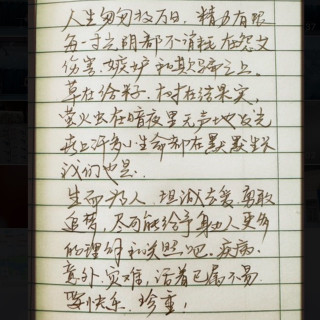 人生匆匆数万日，精力有限
每一寸光阴都不消耗在怨文
伤害、嫉妒和欺骗之上.
草在结籽，树在结果实，
萤火虫在暗夜里无声地发光
世上许多小生命都在默默生长
我们也是.
生而为人，坦诚去爱，勇敢
追梦，尽可能给予身边人更多
的理解和关照吧，疾病、
意外、灾难，活着已属不易.
要快乐，珍重！